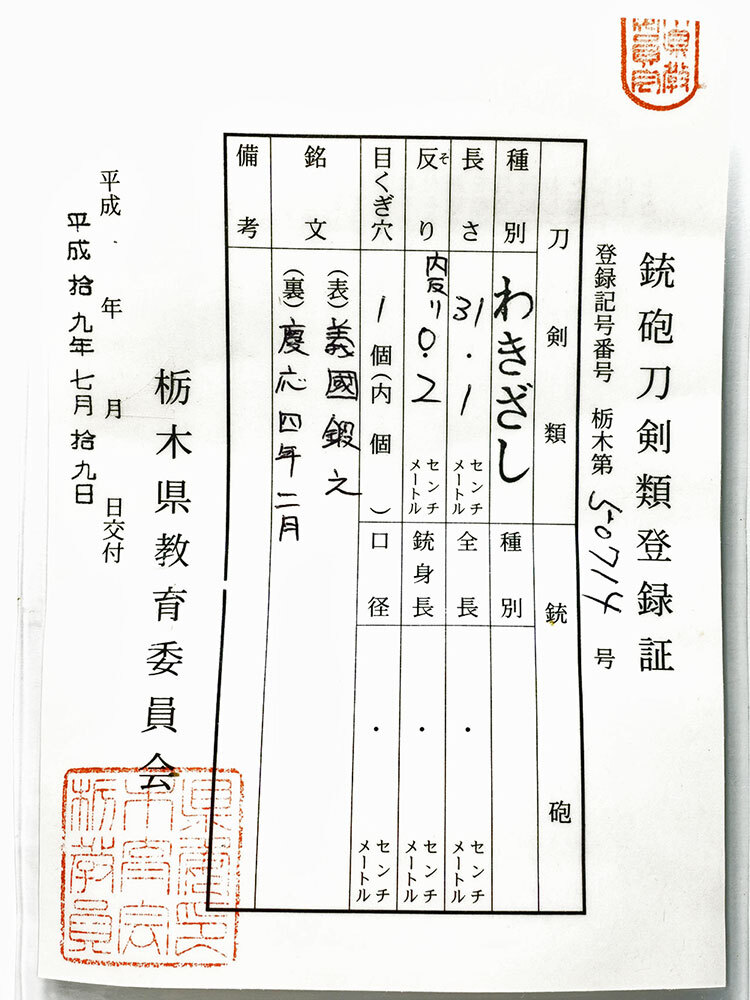 銃砲刀剣類登録証
登録記号番号 栃木第 50714 号
刀剣類 銃砲
種別 わきざし 種別
長さ 31.1 センチメートル 全長 . センチメートル
反り 内反り 0.2 センチメートル 銃身長 . センチメートル
そ
目くぎ穴 1個(内 個) 口径 . センチメートル
銘文 (表)義國鍛之
(裏)慶応四年二月
備考
栃木県教育委員会
平成 . 年 月 日交付
平成拾九年七月拾九日